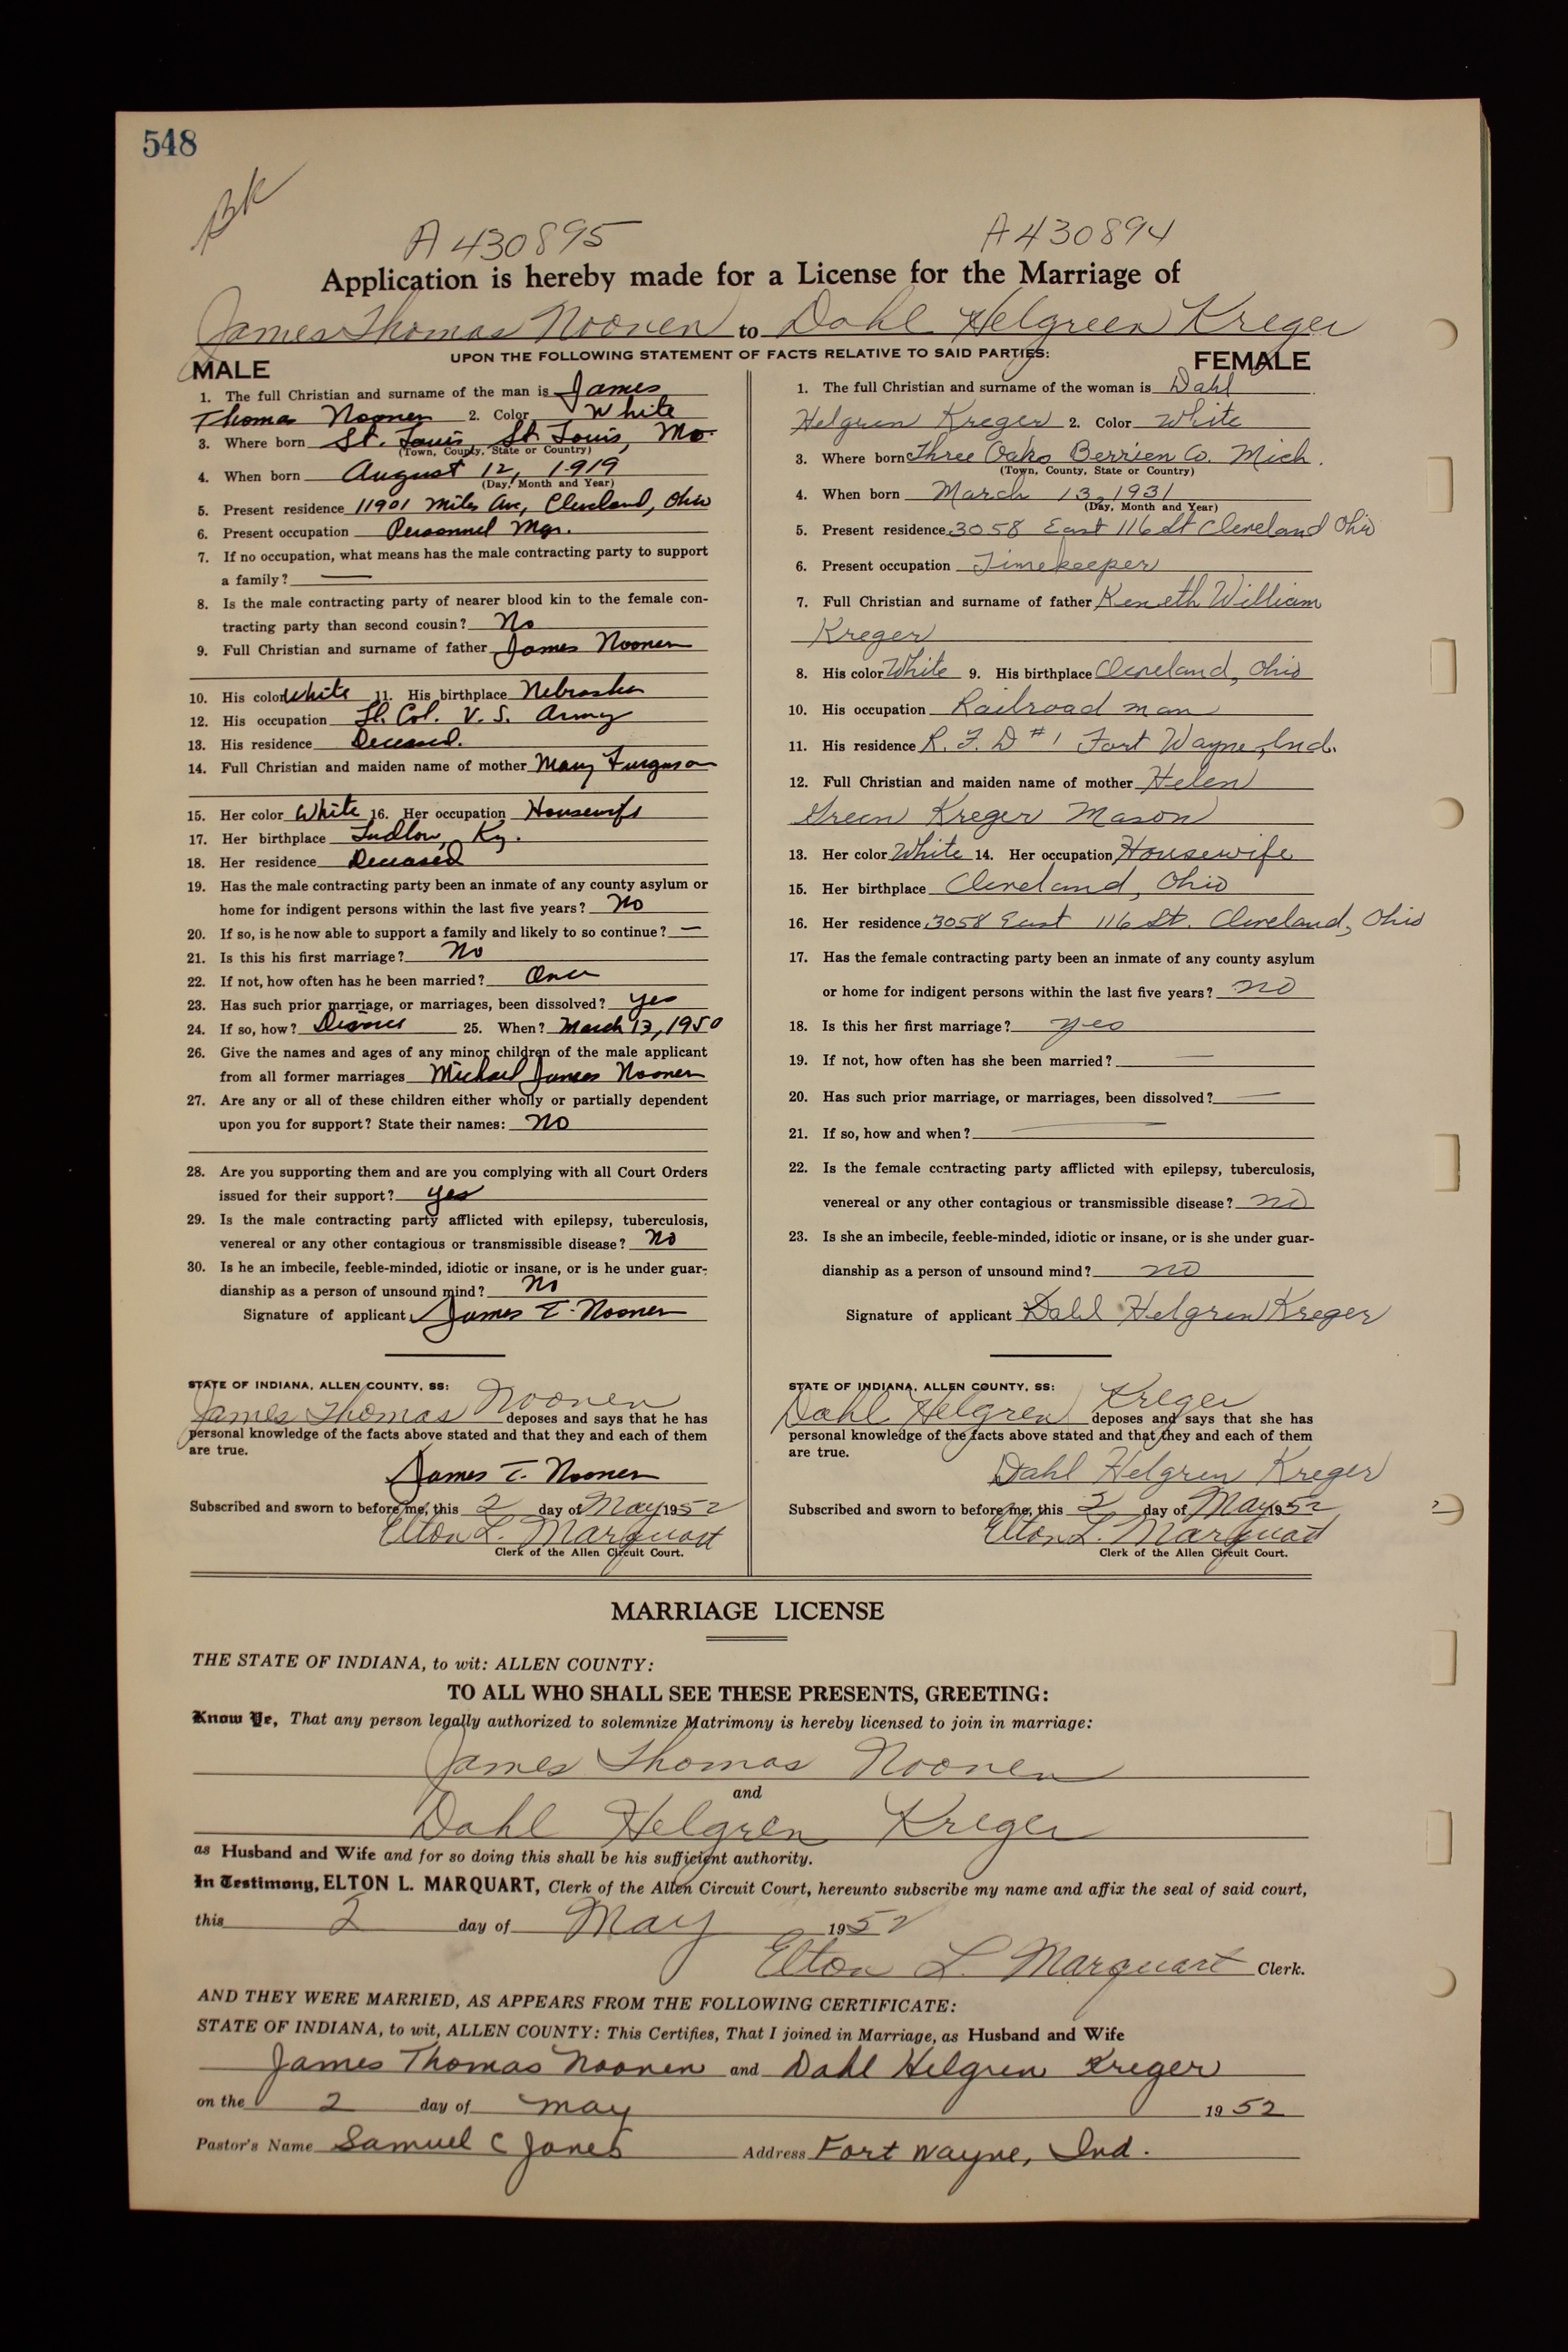 548
A430895 A430894
Application is hereby made for a License for the Marriage of
James Thomas Noonen to Dahl Helgreen Kreger
UPON THE FOLLOWING STATEMENT OF FACTS RELATIVE TO SAID PARTIES:
MALE
1. The full Christian and surname of the man is James
Thomas Noonen 2. Color White
3. Where born St. Louis, St. Louis, Mo.
(Town, County, State or Country)
4. When born August 12, 1919
(Day, Month and Year)
5. Present residence 11901 Miles Ave, Cleveland, Ohio
6. Present occupation Personnel Mgr.
7. If no occupation, what means has the male contracting party to support
a family? —
8. Is the male contracting party of nearer blood kin to the female con-
tracting party than second cousin? No
9. Full Christian and surname of father James Noonen
10. His color White 11. His birthplace Nebraska
12. His occupation Lt. Col. U. S. Army
13. His residence Deceased.
14. Full Christian and maiden name of mother Mary Furguson
15. Her color White 16. Her occupation Housewife
17. Her birthplace Ludlow, Ky.
18. Her residence Deceased
19. Has the male contracting party been an inmate of any county asylum or
home for indigent persons within the last five years? No
20. If so, is he now able to support a family and likely to so continue? —
21. Is this his first marriage? No
22. If not, how often has he been married? Once
23. Has such prior marriage, or marriages, been dissolved? yes
24. If so, how? Divorce 25. When? March 13, 1950
26. Give the names and ages of any minor children of the male applicant
from all former marriages Michael James Noonen
27. Are any or all of these children either wholly or partially dependent
upon you for support? State their names: No
28. Are you supporting them and are you complying with all Court Orders
issued for their support? yes
29. Is the male contracting party afflicted with epilepsy, tuberculosis,
venereal or any other contagious or transmissible disease? No
30. Is he an imbecile, feeble-minded, idiotic or insane, or is he under guar-
dianship as a person of unsound mind? No
Signature of applicant James T. Noonen
STATE OF INDIANA, ALLEN COUNTY, SS:
James Thomas Noonen deposes and says that he has
personal knowledge of the facts above stated and that they and each of them
are true.
James T. Noonen
Subscribed and sworn to before me, this 2 day of May 1952
Elton L. Marquart
Clerk of the Allen Circuit Court.
FEMALE
1. The full Christian and surname of the woman is Dahl
Helgren Kreger 2. Color White
3. Where born Three Oaks Berrien Co. Mich.
(Town, County, State or Country)
4. When born March 13, 1931
(Day, Month and Year)
5. Present residence 3058 East 116 St Cleveland Ohio
6. Present occupation Timekeeper
7. Full Christian and surname of father Keneth William
Kreger
8. His color White 9. His birthplace Cleveland, Ohio
10. His occupation Railroad man
11. His residence R. F. D #1 Fort Wayne, Ind.
12. Full Christian and maiden name of mother Helen
Green Kreger Mason
13. Her color White 14. Her occupation Housewife
15. Her birthplace Cleveland, Ohio
16. Her residence 3058 East 116 St. Cleveland, Ohio
17. Has the female contracting party been an inmate of any county asylum
or home for indigent persons within the last five years? no
18. Is this her first marriage? yes
19. If not, how often has she been married? —
20. Has such prior marriage, or marriages, been dissolved? —
21. If so, how and when? —
22. Is the female contracting party afflicted with epilepsy, tuberculosis,
venereal or any other contagious or transmissible disease? no
23. Is she an imbecile, feeble-minded, idiotic or insane, or is she under guar-
dianship as a person of unsound mind? no
Signature of applicant Dahl Helgren Kreger
STATE OF INDIANA, ALLEN COUNTY, SS:
Dahl Helgren Kreger deposes and says that she has
personal knowledge of the facts above stated and that they and each of them
are true.
Dahl Helgren Kreger
Subscribed and sworn to before me, this 2 day of May 1952
Elton L. Marquart
Clerk of the Allen Circuit Court.
MARRIAGE LICENSE
THE STATE OF INDIANA, to wit: ALLEN COUNTY:
TO ALL WHO SHALL SEE THESE PRESENTS, GREETING:
Know Ye, That any person legally authorized to solemnize Matrimony is hereby licensed to join in marriage:
James Thomas Noonen
and
Dahl Helgren Kreger
as Husband and Wife and for so doing this shall be his sufficient authority.
In Testimony, ELTON L. MARQUART, Clerk of the Allen Circuit Court, hereunto subscribe my name and affix the seal of said court,
this 2 day of May 1952
Elton L. Marquart Clerk.
AND THEY WERE MARRIED, AS APPEARS FROM THE FOLLOWING CERTIFICATE:
STATE OF INDIANA, to wit, ALLEN COUNTY: This Certifies, That I joined in Marriage, as Husband and Wife
James Thomas Noonen and Dahl Helgren Kreger
on the 2 day of May 1952
Pastor's Name Samuel C Jones Address Fort Wayne, Ind.